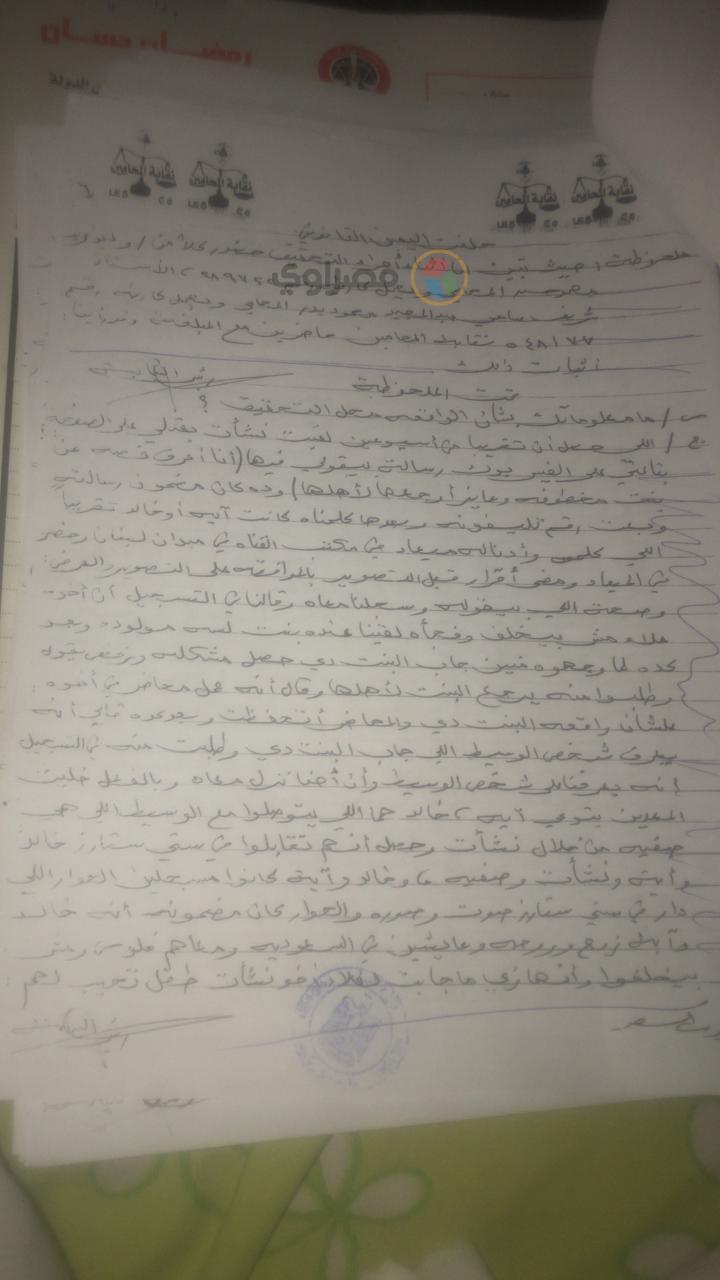 رمضان حسان
والدولة
نقابة المحامين نقابة المحامين نقابة المحامين نقابة المحامين
حلف اليمين القانوني
ملحوظة / حيث تبين لنا أثناء إجراء التحقيق حضور كلا من / وليد
مصراوي
المحامي الأستاذ
شريف سامي عبد المجيد محمود بدر المحامي ويحمل كارنيه رقم
٥٤٨١٧٧ نقابة المحامين حاضرين مع المبلغين وقررنا
إثبات ذلك
تمت الملحوظة
س / ما معلوماتك بشأن الواقعة محل التحقيق ؟
ج / اللي حصل أن تقريبا من أسبوعين لقيت نشأت بعتلي على الصفحة
بتاعتي على الفيس بوك رسالة بيقولي فيها (أنا أعرف قصة عن
بنت مخطوفة وعايز أرجعها لأهلها) وده كان مضمون رسالته
رقم تليفونه وبعدها كلمناه كانت آية أو خالد تقريباً
اللي كلموه وأدناله ميعاد في مكتب القناة في ميدان لبنان وحضر
في الميعاد ومضى أقرار قبل التصوير بالموافقة على التصوير والعرض
وصحة اللي بيقوله وسجلنا معاه وقالنا في التسجيل أن أخوه
علاء مش بيخلف وفجأة لقينا عنده بنت لسه مولودة وبعد
كده لما واجهوه منين جاب البنت دي حصل مشكلة ورفض يقول
وطلبوا منه يرجع البنت لأهلها وقال أنه عمل محاضر في أخوه
علشان واقعة البنت دي والمحاضر أتحفظت وبعد كده قالي أنه
يعرف شخص الوسيط اللي جاب البنت دي وطلبت منه في التسجيل
أنه يعرفنا على شخص الوسيط وأن أحنا ننزل معاه وبالفعل خليت
المعدين بتوعي آية، خالد هما اللي يتوصلوا مع الوسيط اللي هي
صفية من خلال نشأت وحصل أنهم تقابلوا في ستي ستارز خالد
وآية ونشأت وصفية وخالد وآية كانوا مسجلين الحوار اللي
دار في ستي ستارز صوت وصورة والحوار كان مضمونه أنه خالد
وآية زوج وزوجة وعايشين في السعودية ومعاهم فلوس ومش
بيخلفوا وأنها زي ما جابت لعلاء أخو نشأت طفل تجيب لهم